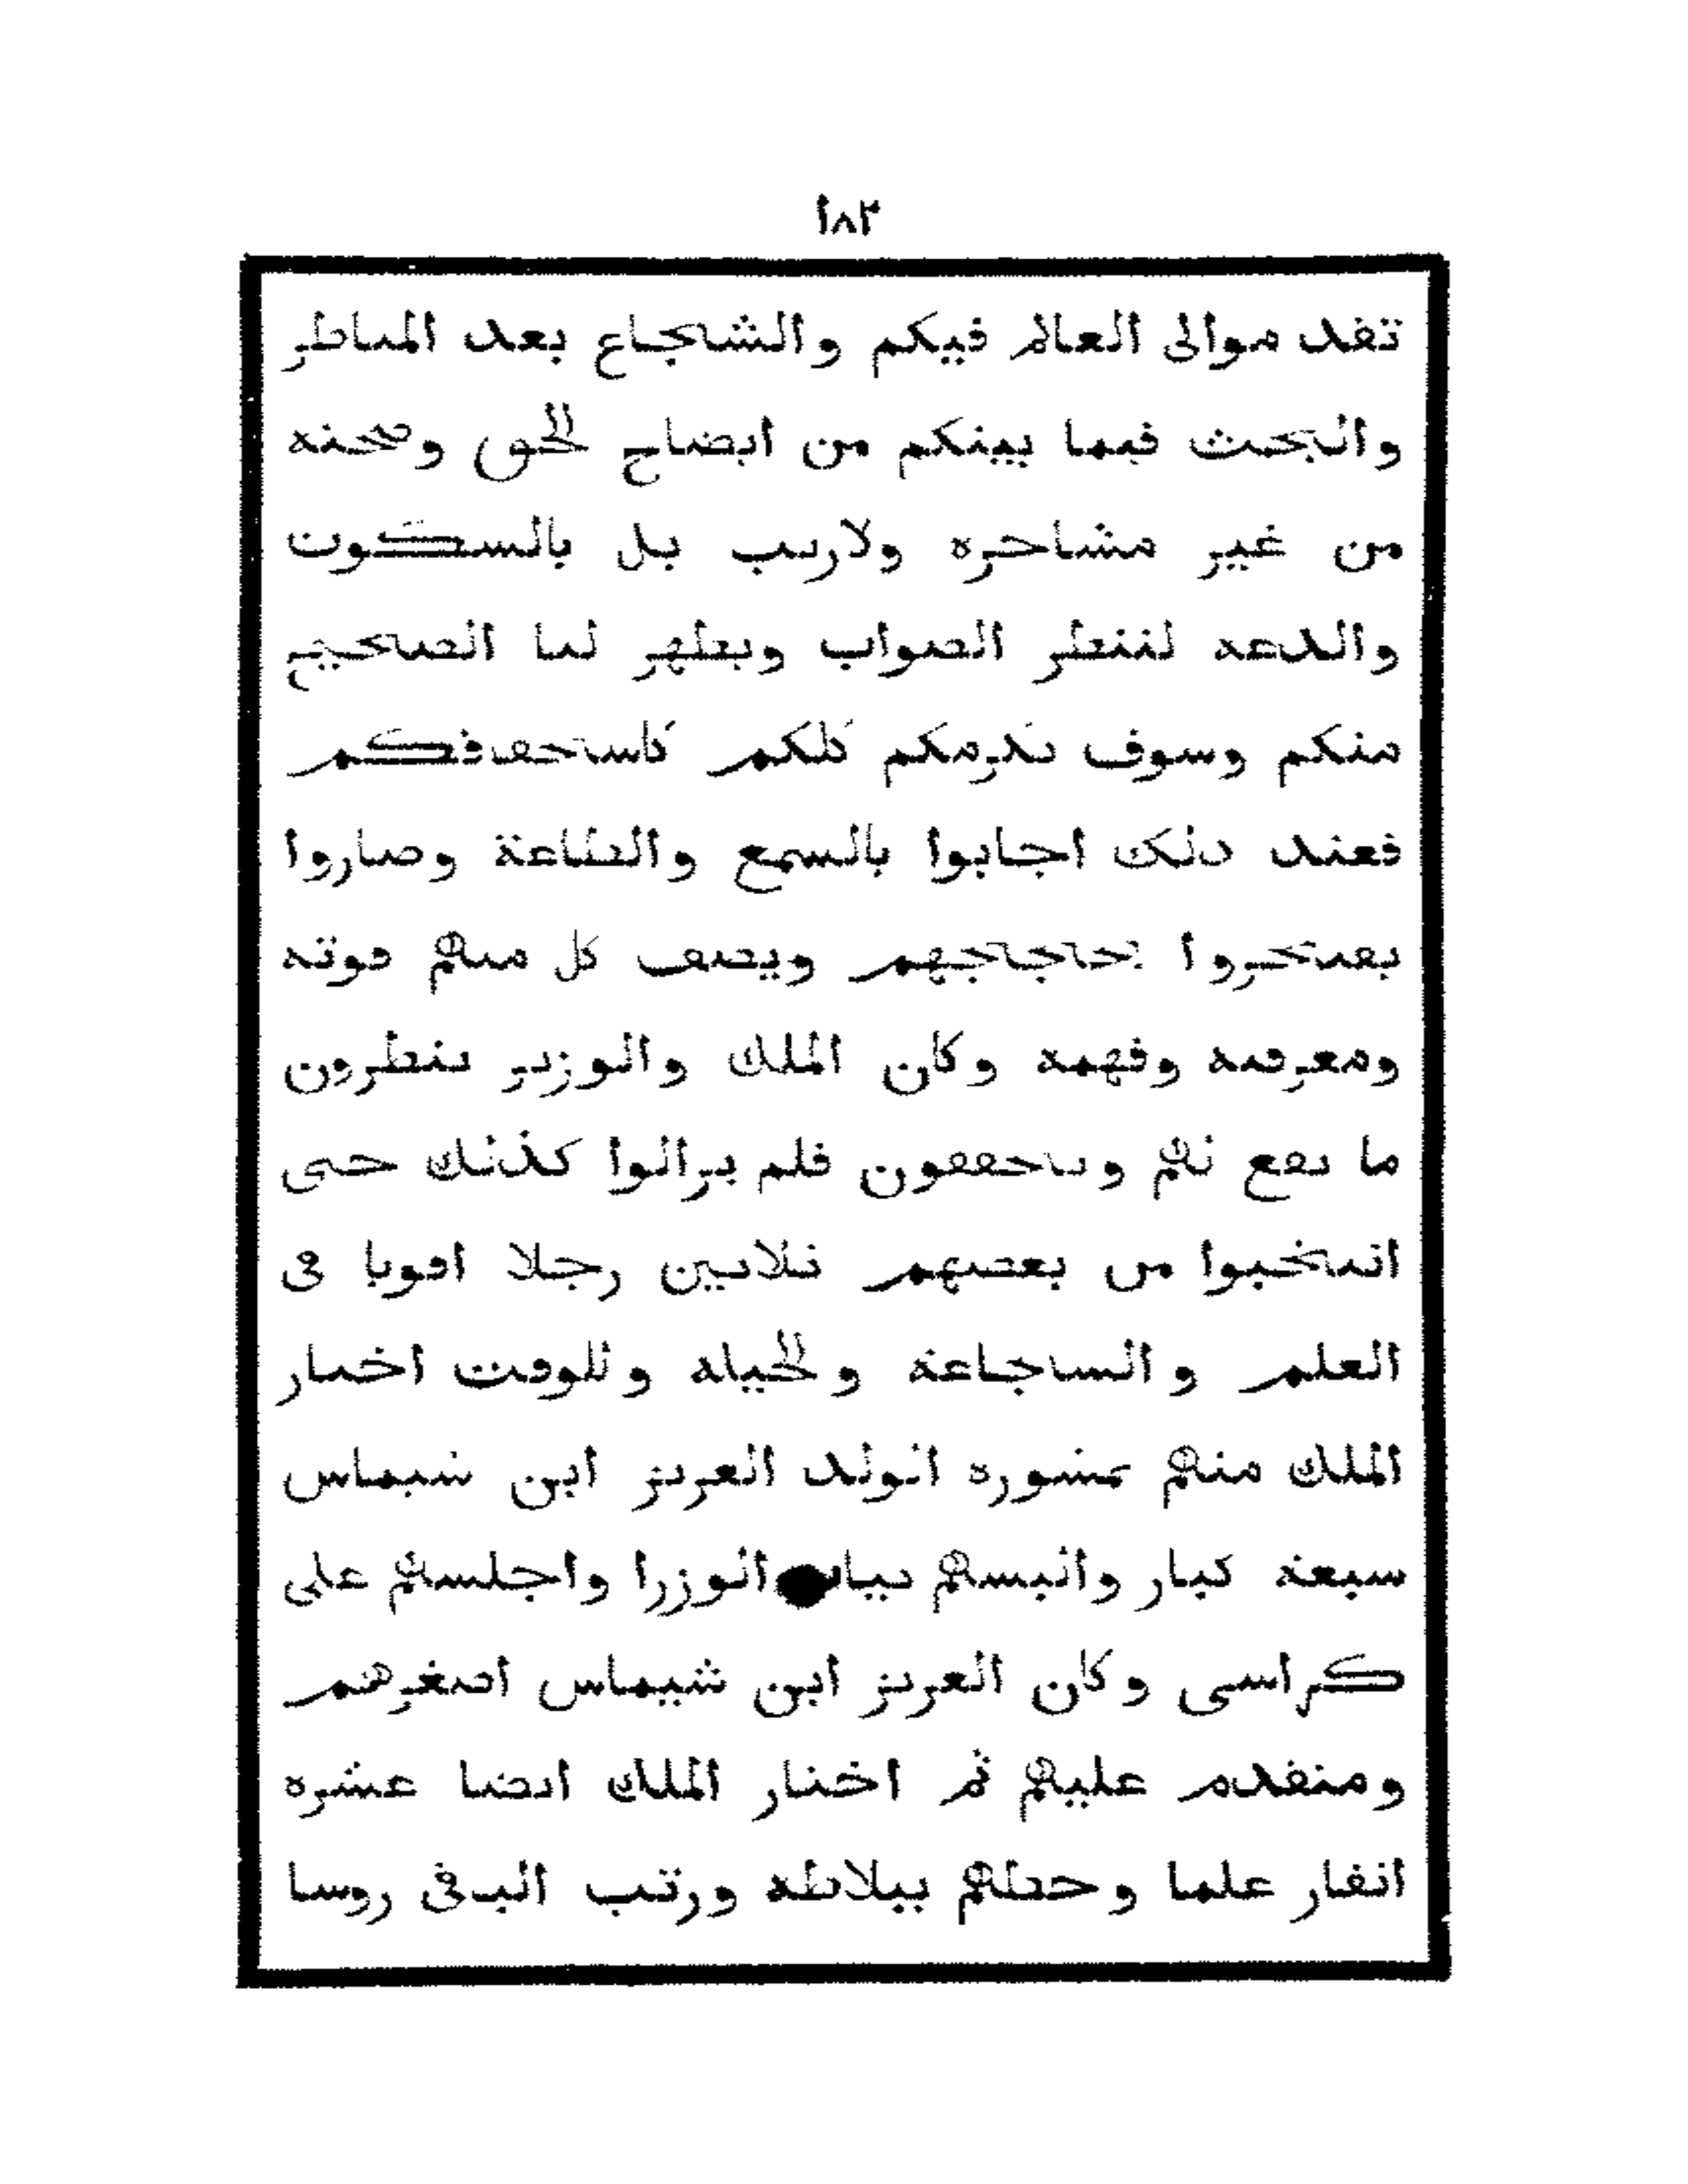 ١٨٣
تقد موالى العالم فيكم والشجاع بعد المناظر
والبحث فيما بينكم من ايضاح الحق وصحته
من غير مشاجره ولاريب بل بالسكون
والدعه لننظر الصواب ويظهر لنا الصحيح
منكم وسوف نكرمكم كلكم كاستحقاقكم
فعند ذلك اجابوا بالسمع والطاعة وصاروا
يفتخروا بحاججهم ويصف كل منهم قوته
ومعرفته وفهمه وكان الملك والوزير ينظرون
ما يقع لهم ويتحققون فلم يزالوا كذلك حتى
انتخبوا من بعضهم ثلاثين رجلا اقويا فى
العلم والشجاعة والحيله وللوقت اختار
الملك منهم بمشوره الولد العزيز ابن شيماس
سبعة كبار والبسهم ثياب الوزرا واجلسهم على
كراسى وكان العزيز ابن شيماس اصغرهم
ومتقدم عليهم ثم اختار الملك ايضا عشره
انفار علما وحطهم ببلاطه ورتب البقى روسا